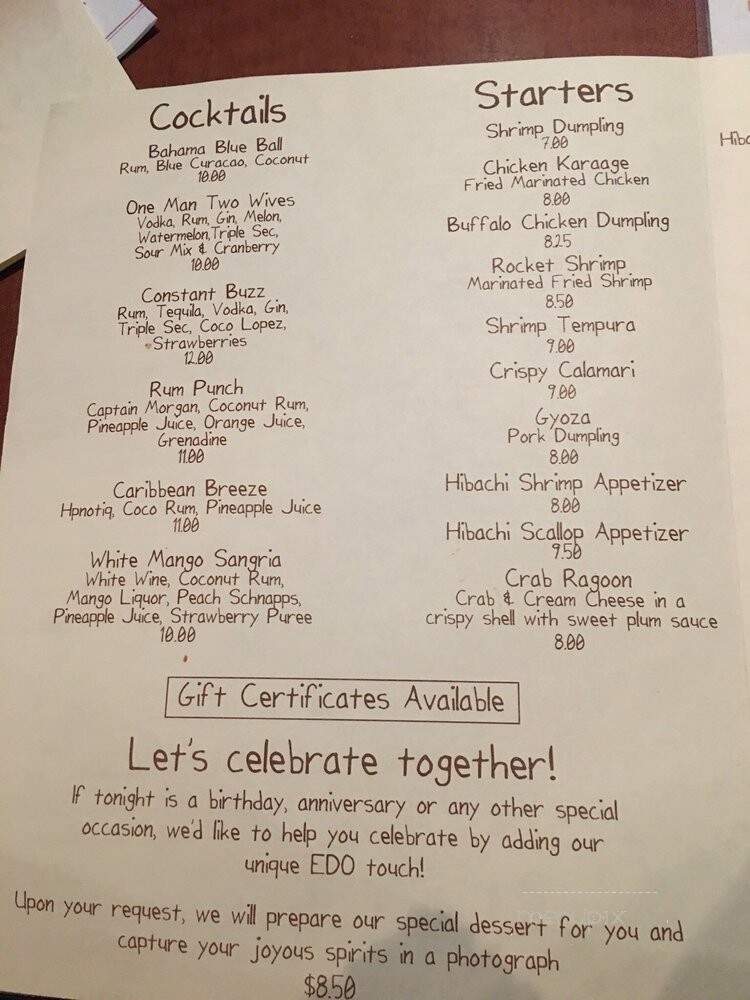 Cocktails
Bahama Blue Ball
Rum, Blue Curacao, Coconut
10.00
One Man Two Wives
Vodka, Rum, Gin, Melon,
Watermelon, Triple Sec,
Sour Mix & Cranberry
10.00
Constant Buzz
Rum, Tequila, Vodka, Gin,
Triple Sec, Coco Lopez,
Strawberries
12.00
Rum Punch
Captain Morgan, Coconut Rum,
Pineapple Juice, Orange Juice,
Grenadine
11.00
Caribbean Breeze
Hpnotiq, Coco Rum, Pineapple Juice
11.00
White Mango Sangria
White Wine, Coconut Rum,
Mango Liquor, Peach Schnapps,
Pineapple Juice, Strawberry Puree
10.00
Starters
Shrimp Dumpling
7.00
Chicken Karaage
Fried Marinated Chicken
8.00
Buffalo Chicken Dumpling
8.25
Rocket Shrimp
Marinated Fried Shrimp
8.50
Shrimp Tempura
9.00
Crispy Calamari
9.00
Gyoza
Pork Dumpling
8.00
Hibachi Shrimp Appetizer
8.00
Hibachi Scallop Appetizer
9.50
Crab Ragoon
Crab & Cream Cheese in a
crispy shell with sweet plum sauce
8.00
Gift Certificates Available
Let's celebrate together!
If tonight is a birthday, anniversary or any other special
occasion, we'd like to help you celebrate by adding our
unique EDO touch!
Upon your request, we will prepare our special dessert for you and
capture your joyous spirits in a photograph
$8.50